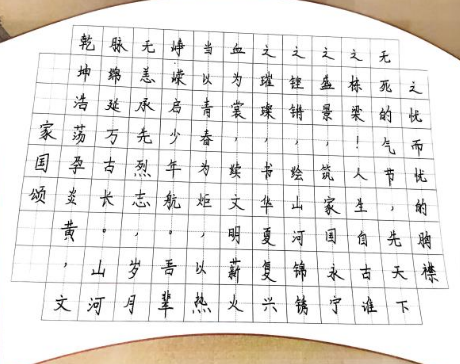 家国颂
乾坤浩荡孕炎黄，文
脉绵延万古长。山河
无恙承先烈志，岁月
峥嵘启少年航。吾辈
当以青春为炬，以热
血为裳，续文明薪火
之璀璨，书华夏复兴
之铿锵，绘山河锦绣
之盛景，筑家国永宁
之栋梁！人生自古谁
无死的气节，先天下
之忧而忧的胸襟